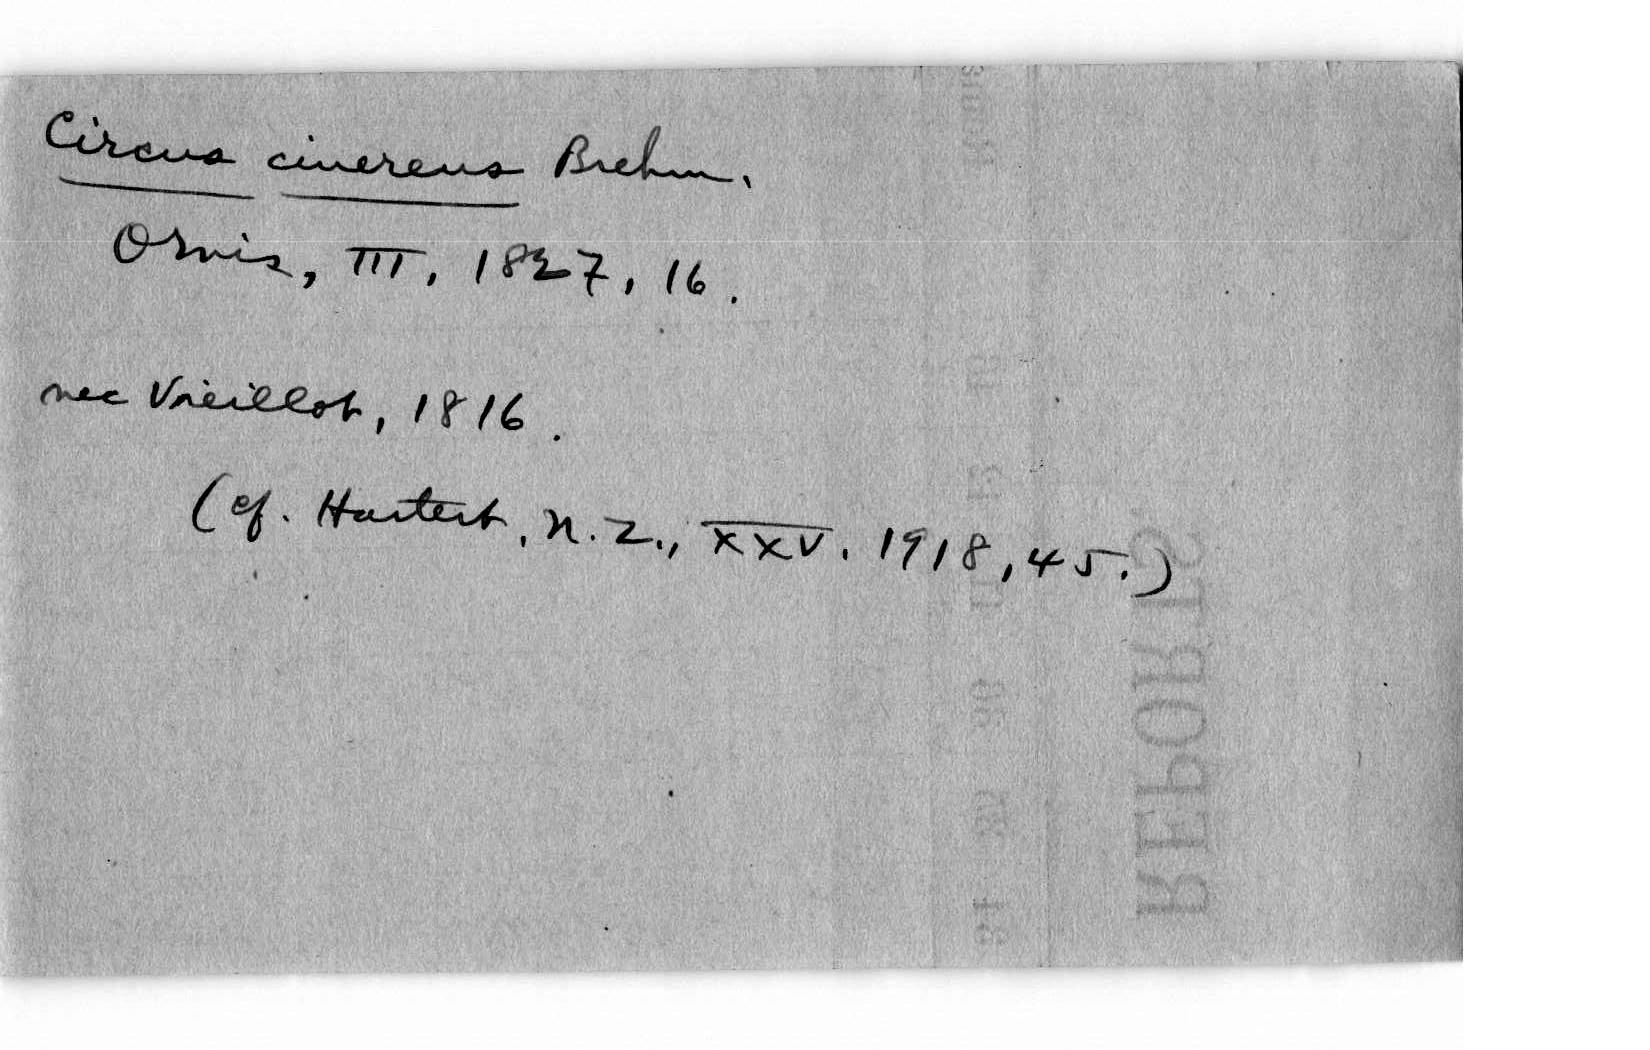 Circus cinereus Brehm.
Ornis, III, 1827, 16.
nec Vieillot, 1816.
(cf. Hartert, N.Z., XXV. 1918, 45.)
REPORTS